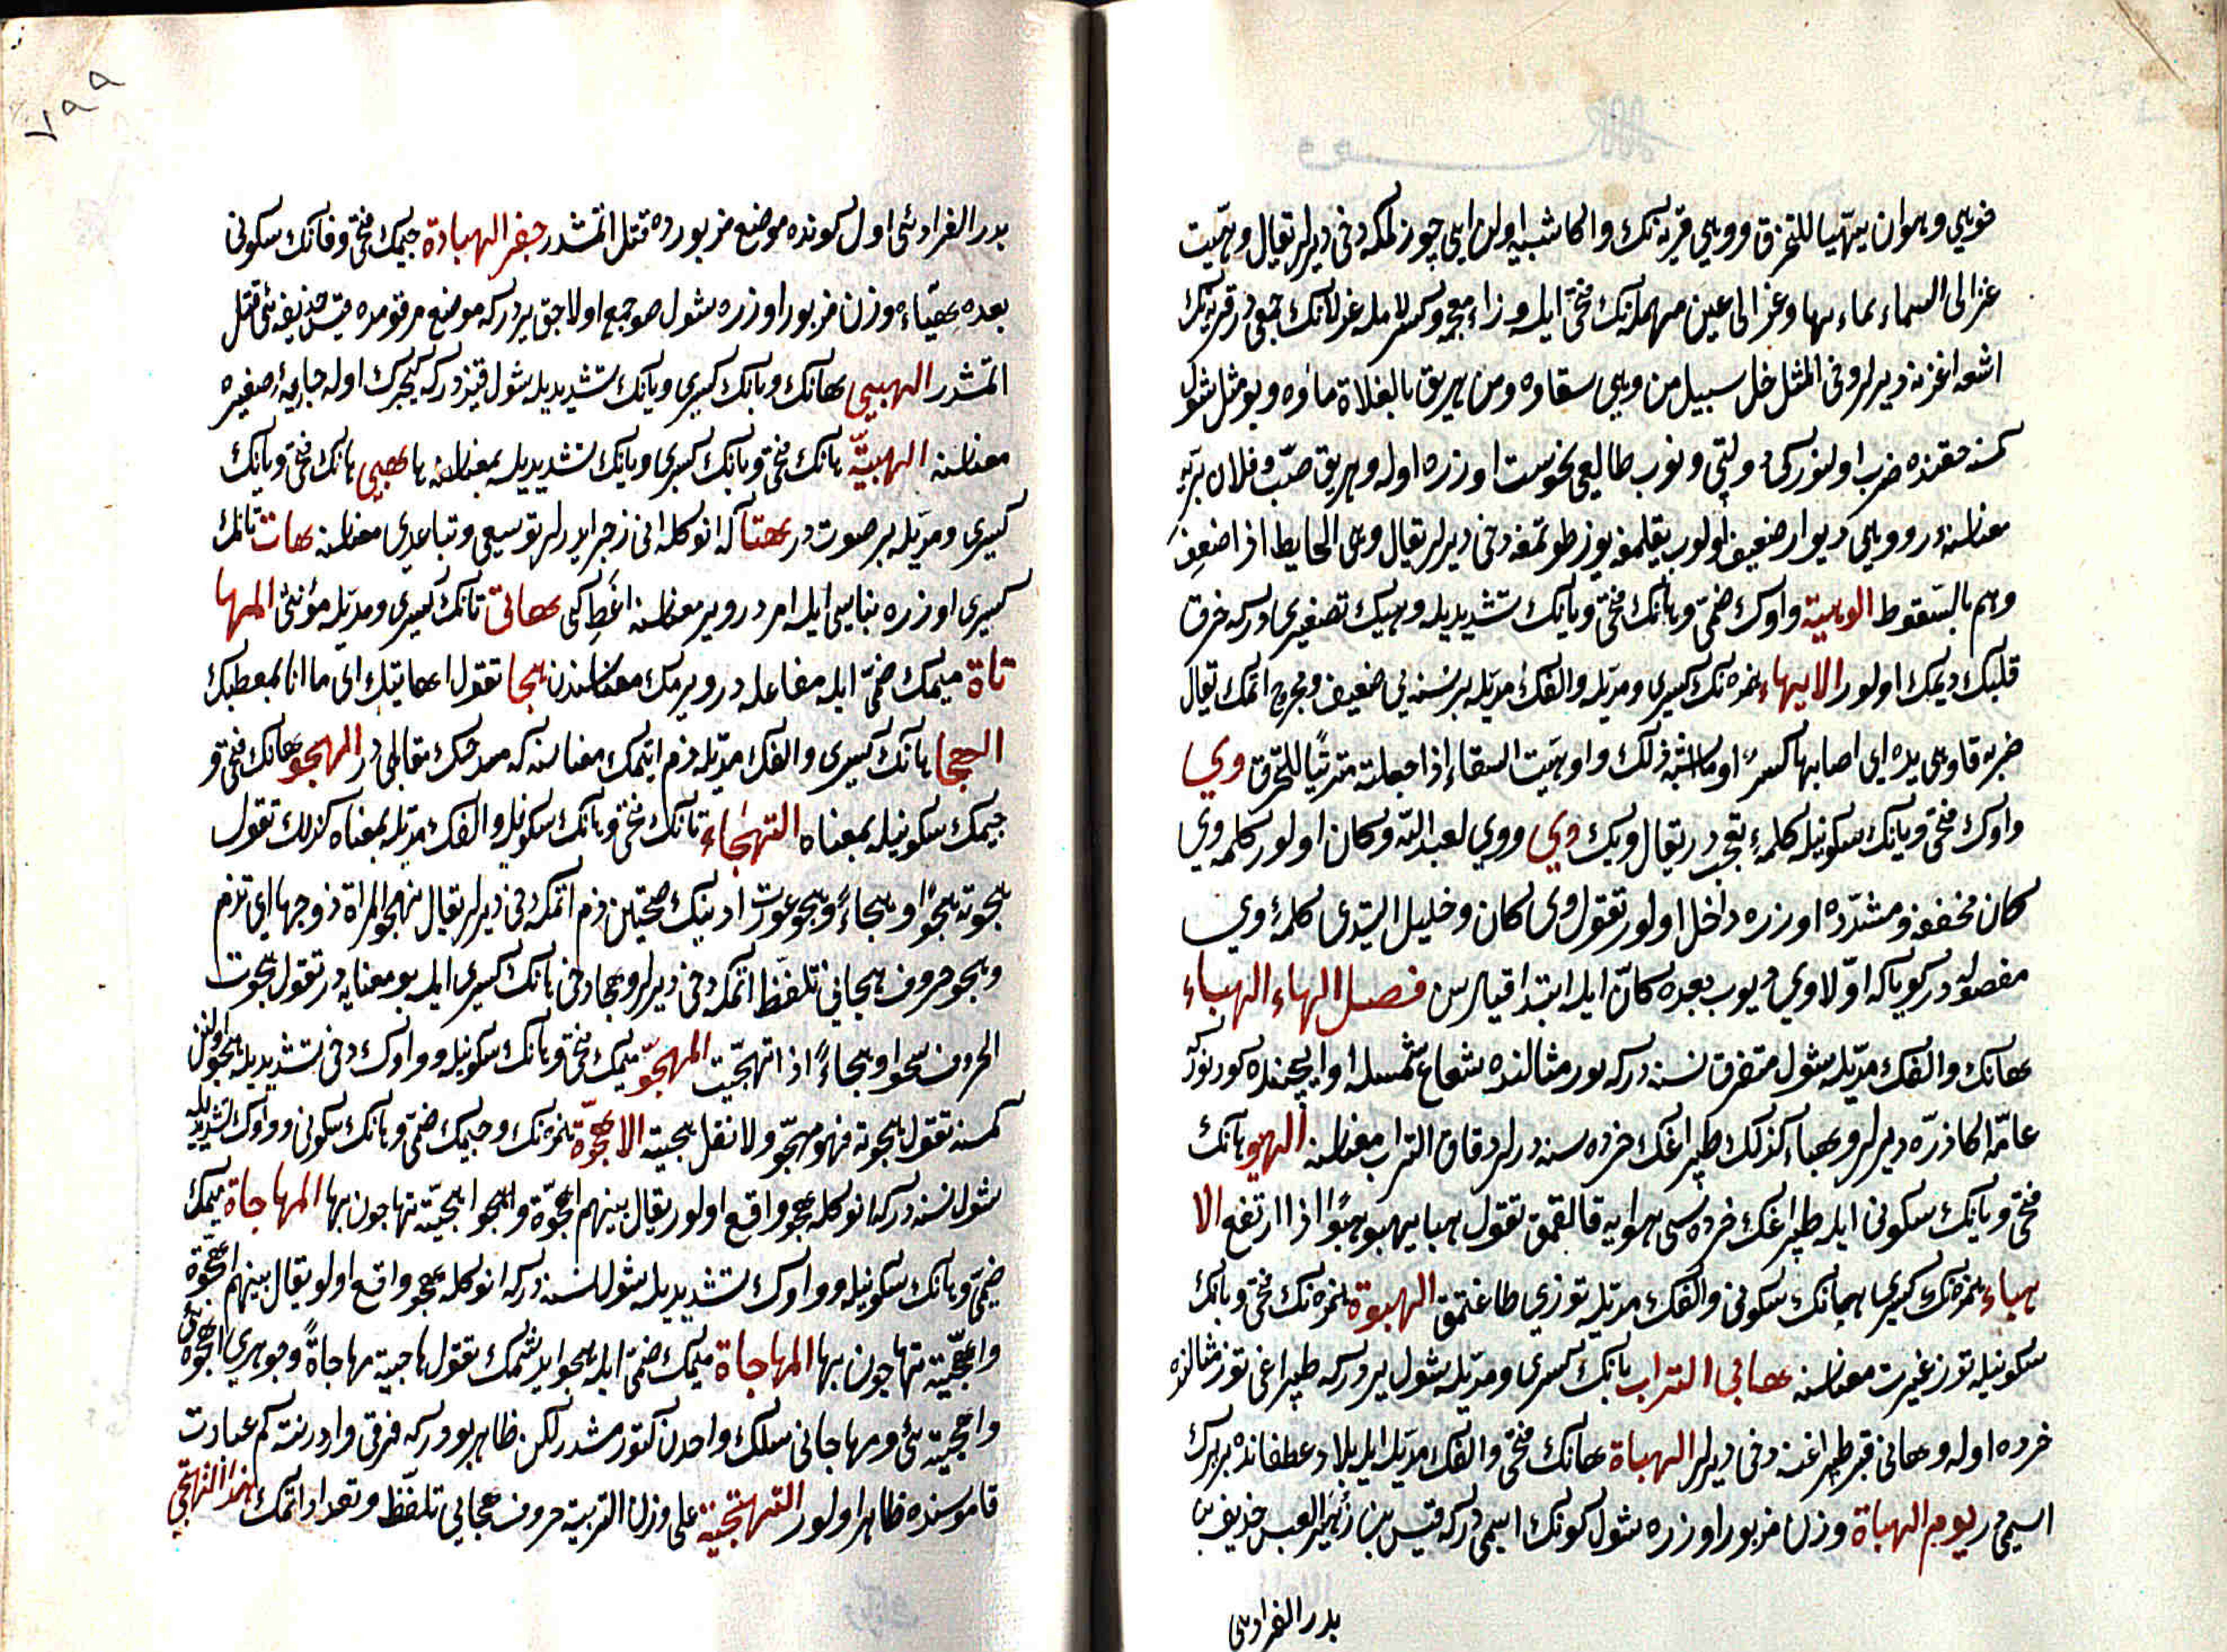 فهوهى وهو ان يتهيأ للتخرق ووهى قربه نك واكا شبيه اولان ايپ چوزلمكه دخى ديرلر يقال وهيت
عزالى السماء بماءها وعزالى عين مهمله نك فتحى ايله وزاء معجمه وكسر لامله عزلانك جمعى در قربه نك
اشغه اغزنه ديرلر وفى المثل خل سبيل من وهى سقاءه ومن هريق بالفلاة ماؤه وبو مثل شول
كمسنه حقنده ضرب اولنور كى دولتى دونوب طالعى نحوست اوزره اوله وهريق صبّ وفلان بريه
معناسنه در ووهى ديوار ضعيف اولوب يقلمغه يوز طوتمغه دخى ديرلر يقال وهى الحايط اذا ضعف
وهم بالسقوط الوهية واوك ضمى وهانك فتحى ويانك تشديديله وهيك تصغيرى در كه خرق
قلبك ديمك اولور الايهاء همزه نك كسرى ومديله والفك مديله بر نسنه يى ضعيف ومجروح اتمك يقال
ضربه فاوهى يده اى اصابها كسر او ما اشبه ذلك واوهيت السقاء اذا جعلته متهيئا للتخرق وي
واوك فتحى ويانك سكونيله كلمه تعجب در يقال ويك وي ووي لعبد الله وكان اولور كلمه وى
كان مخففه ومشدده اوزره داخل اولور تقول وى كان وخليل ايتدى كلمه وي
مفصوله در كويا كه اولا وي ديوب بعده كان ايله ابتدا قيلرسن فصل الهاء الهباء
هانك والفك مديله شول متفرق نسنه در كه بور مثالنده شعاع شمسله او ايچنده كورنور
عامه اكا ذره ديرلر وهباء كذلك طپراغك خرده سنه درلر دقاق التراب معناسنه الهبو هانك
فتحى وبانك سكونى ايله طپراغك خرده سى هوايه قالقمق تقول هبا يهبو هبوا اذا ارتفع الا
هباء همزه نك كسرى هانك سكونى والفك مديله توزى طاغتمق الهبوة همزه نك فتحى وبانك
سكونيله توز غبرت معناسنه هابى التراب بانك كسرى ومديله شول يردر كه طپراغى توز مثالنده
خرده اوله وهابى قبر طپراغنه دخى ديرلر الهباة هانك فتحى والفك مديله ايله بلاد غطفانده بر يرك
اسمى در يوم الهباة وزن مزبور اوزره شول كونك اسمى در كه قيس بن زهير العبسى حذيفه بن
بدر الفرادى
٧٩٩
بدر الفرادئى اول كونده موضع مزبورده قتل اتمشدر جفر الهباءة جيمك فتحى وفانك سكونى
بعده هباء وزن مزبور اوزره شول صو جمع اولاجق يردر كه موضع مرقومده قيس حذيفه ئى قتل
اتمشدر الهبيى هانك وبانك كسرى ويانك تشديديله شول قيزدر كه كيجرك اوله جارية صغيره
معناسنه الهبية هانك فتحى وبانك كسرى ويانك تشديديله بمعناسنه ها هبى هانك فتحى وبانك
كسرى ومديله بر صوتدر هتا كه انوكله انى زجر ايدرلر توسيعى وتباعدى معناسنه هات تانك
كسرى اوزره بناسى ايله امردر ووير معناسنه اعط كى هاتى تانك كسرى ومديله مؤنثى المها
تاة ميمك ضمى ايله مفاعله در ويرمك معناسندن هجا تقول اهاتيك اى ما انا بمعطيك
الهجا هانك كسرى والفك مديله ذم ايتمك معناسنه كه مدحك مقابلى در الهجو هانك فتحى و
جيمك سكونيله بمعناه التهجاء تانك فتحى وهانك سكونيله والفك مديله بمعناه كذلك تقول
هجوته هجوا وهجاء وهجو عورت ارينك صحبتين ذم اتمكه دخى ديرلر يقال تهجو المراة زوجها اى تذم
وهجو حروف هجائى تلفظ اتمكه دخى ديرلر وهجا دخى هانك كسرى ايله بو معنايه در تقول هجوت
الحروف هجوا وهجاء اذا تهجيت المهجو ميمك فتحى وهانك سكونيله وواوك دخى تشديديله هجو اولنن
كمسنه تقول هجوته فهو مهجو ولا تقل هجيته الاهجوة همزه نك وجيمك ضمى وهانك سكونى وواوك تشديديله
شول نسنه در كه انوكله هجو واقع اولور يقال بينهم اهجوة واهجية يتهاجون بها المهاجاة ميمك
ضمى وهانك سكونيله وواوك تشديديله شول نسنه در كه انوكله هجو واقع اولور يقال بينهم اهجوة
واهجية يتهاجون بها المهاجاة ميمك ضمى ايله هجو ايدشمك تقول هاجيته مهاجاة وجوهرى اهجوه
واهجية ئى ومهاجاتى سلك واحدن كتورمشدر لكن ظاهر بودر كه فرقى واردر نته كم عبارت
قاموسنده ظاهر اولور التهجية على وزن التربية حروف هجائى تلفظ وتعداد اتمك هذا التهجى